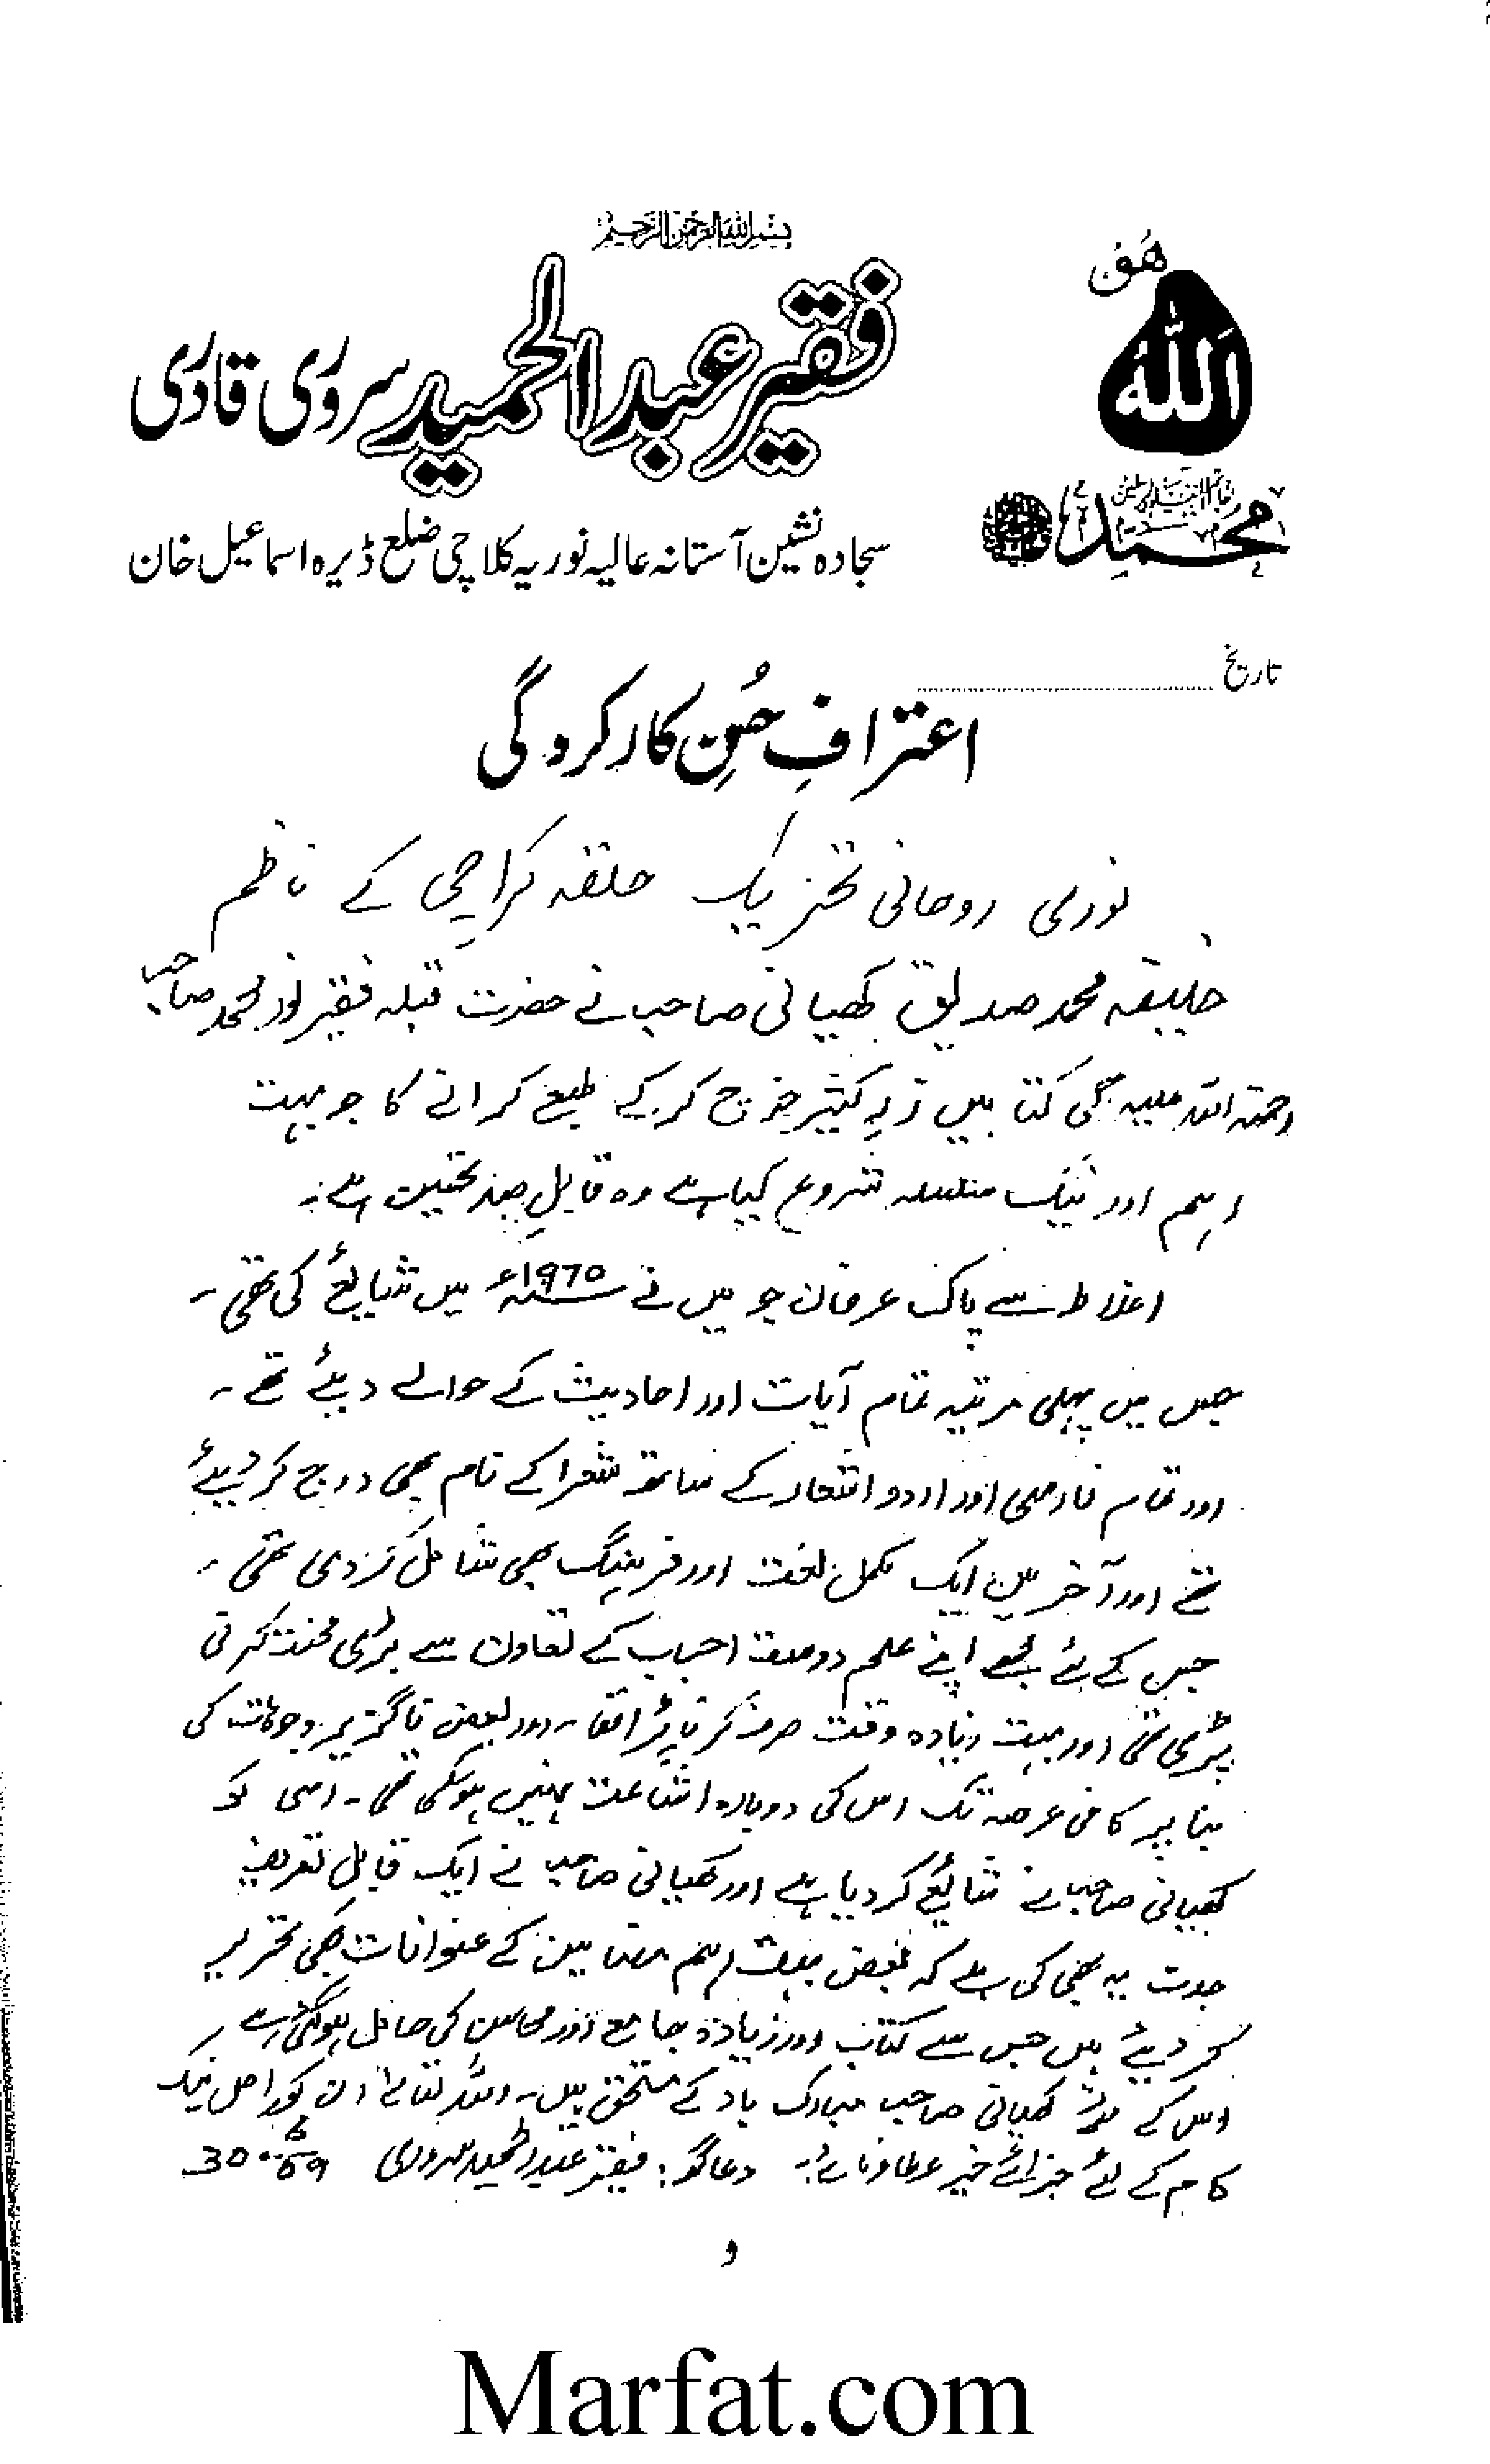 بسم اللہ الرحمن الرحیم
ھُو
اللہ
محمد
فقیر عبدالحمید سروری قادری
سجادہ نشین آستانہ عالیہ نوریہ کلاچی ضلع ڈیرہ اسماعیل خان
تاریخ
اعترافِ حُسنِ کارکردگی
نوری روحانی تحریک حلقہ کراچی کے ناظم
خلیفہ محمد صدیق کھیانی صاحب نے حضرت قبلہ فقیر نور محمد صاحب
رحمتہ اللہ علیہ کی کتابیں زرِ کثیر خرچ کر کے طبع کرانے کا جو بہت
اہم اور نیک سلسلہ شروع کیا ہے وہ قابلِ صد تحسین ہے۔
اغلاط سے پاک عرفان جو میں نے 1970ء میں شایع کی تھی۔
جس میں پہلی مرتبہ تمام آیات اور احادیث کے حوالے دیئے تھے۔
اور تمام فارسی اور اردو اشعار کے ساتھ شعرا کے نام بھی درج کر دیئے
تھے اور آخر میں ایک مکمل لغت اور فرہنگ بھی شامل کر دی تھی۔
جس کے لئے مجھے اپنے علم دوست احباب کے تعاون سے بڑی محنت کرنی
پڑی تھی اور بہت زیادہ وقت صرف کرنا پڑا تھا۔ اور بعض ناگزیر وجوہات کی
بنا پر کافی عرصہ تک اس کی دوبارہ اشاعت نہیں ہوسکی تھی۔ اسی کو
کھیانی صاحب نے شائع کر دیا ہے اور کھیانی صاحب نے ایک قابلِ تعریف
جدت یہ بھی کی ہے کہ بعض بہت اہم مضامین کے عنوانات بھی تحریر
کر دیئے ہیں جس سے کتاب اور زیادہ جامع اور محاسن کی حامل ہوگئی ہے
اس کے لئے کھیانی صاحب مبارک باد کے مستحق ہیں۔ اللہ تعالےٰ ان کو اس نیک
کام کے لئے جزائے خیر عطا فرمائے۔ دعاگو: فقیر عبدالحمید سروری
و
Marfat.com